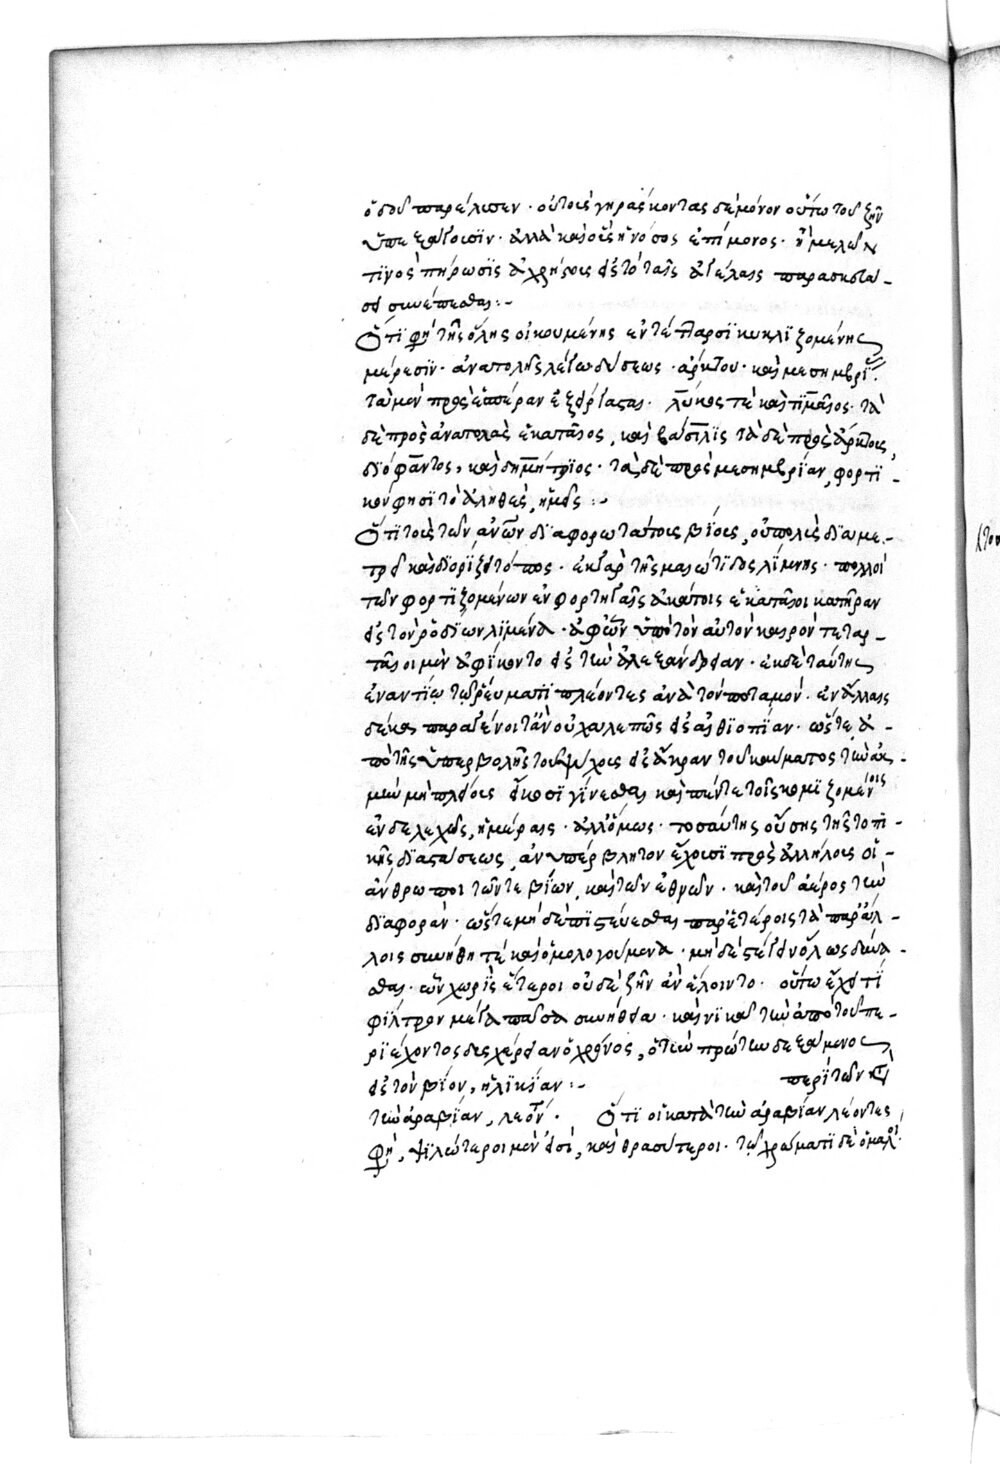 ὁδοῦ παρείλισεν· οὐ τοὺς γηράσκοντας δὲ μόνον οὕτω τοῦ ζῆν
ὑπεξάγουσιν· ἀλλὰ καὶ οὓς ἡ νόσος ἐπίμονος· ἢ μέλους
τινὸς πήρωσις ἀχρήστους εἰς τὸ ταῖς ἀγέλαις παρασκευά-
σει συνέπεσθαι :-
Ὅτι φη τῆς ὅλης οἰκουμένης ἐν τέτταρσι κυκλιζομένης
μέρεσιν· ἀνατολῆς λέγω δύσεως· ἄρκτου· καὶ μεσημβρίας·
τὰ μὲν πρὸς ἑσπέραν ἐξείργασται· λύκος τὲ καὶ τίμαιος· τὰ
δὲ πρὸς ἀνατολὰς ἑκαταῖος, καὶ βασιλὶς τὰ δὲ πρὸς ἄρκτους,
διόφαντος, καὶ δημήτριος· τὰ δὲ πρὸς μεσημβρίαν, φορτι-
κὸν φησὶ τὸ ἀληθὲς, ἡμεῖς :-
Ὅτι τοὺς τῶν ἀνων διαφορωτάτους βίους, οὐ πολὺς διαμε-
τρεῖ καὶ διορίζει τόπος· ἐκ γὰρ τῆς μαιώτιδος λίμνης· πολλοὶ
τῶν φορτιζομένων ἐν φορτηγαῖς ἀκάτοις δεκαταῖοι κατῆραν
εἰς τὸν ῥοδίων λιμένα· ἀφ' ὧν ὑπὸ τὸν αὐτὸν καιρὸν τεταρ-
ταῖοι μὲν ἀφίκοντο εἰς τὴν ἀλεξάνδρειαν· ἐκ δὲ ταύτης
ἐναντίῳ τῷ ῥεύματι πλέοντες ἀνὰ τὸν ποταμόν· ἐν ἄλλαις
δέκα παραγένοιτ' ἂν οὐ χαλεπῶς εἰς αἰθιοπίαν· ὥστε ἀ-
πὸ τῆς ὑπερβολῆς τοῦ ψύχους εἰς ἄκραν τοῦ καύματος τὴν ἀκ-
μὴν μὴ πλείους εἴκοσι γίνεσθαι καὶ πέντε τοῖς κομιζομένοις
ἐνδελεχῶς, ἡμέραις· ἀλλ' ὅμως· τοσαύτης οὔσης τῆς τοπι-
κῆς διαστάσεως, ἀνυπέρβλητον ἔχουσι πρὸς ἀλλήλους οἱ
ἄνθρωποι τῶν τε βίων, καὶ τῶν ἐθῶν· καὶ τοῦ ἀέρος τὴν
διαφοράν· ὥστε μὴ δὲ πιστεύεσθαι παρ' ἑτέροις τὰ παρ' ἄλ-
λοις συνήθη τὲ καὶ ὁμολογούμενα· μὴ δὲ στέγειν ὅλως δύνα-
σθαι· ὧν χωρὶς ἕτεροι οὐδὲ ζῆν ἂν ἕλοιντο· οὕτω ἔχει τι
φίλτρον μέγα πᾶσα συνήθεια· καὶ νικᾷ τὴν ἀπὸ τοῦ πε-
ριέχοντος δυσχέρειαν ὁ χρόνος, ὁ τὴν πρώτην δεξάμενος
εἰς τὸν βίον, ἡλικίαν :- περὶ τῶν κτ
τὴν ἀραβίαν, λεόν. Ὅτι οἱ κατὰ τὴν ἀραβίαν λέοντες
φη, ψιλώτεροι μὲν εἰσὶ, καὶ θρασύτεροι· τῷ χρώματι δὲ ὁμαλοὶ·